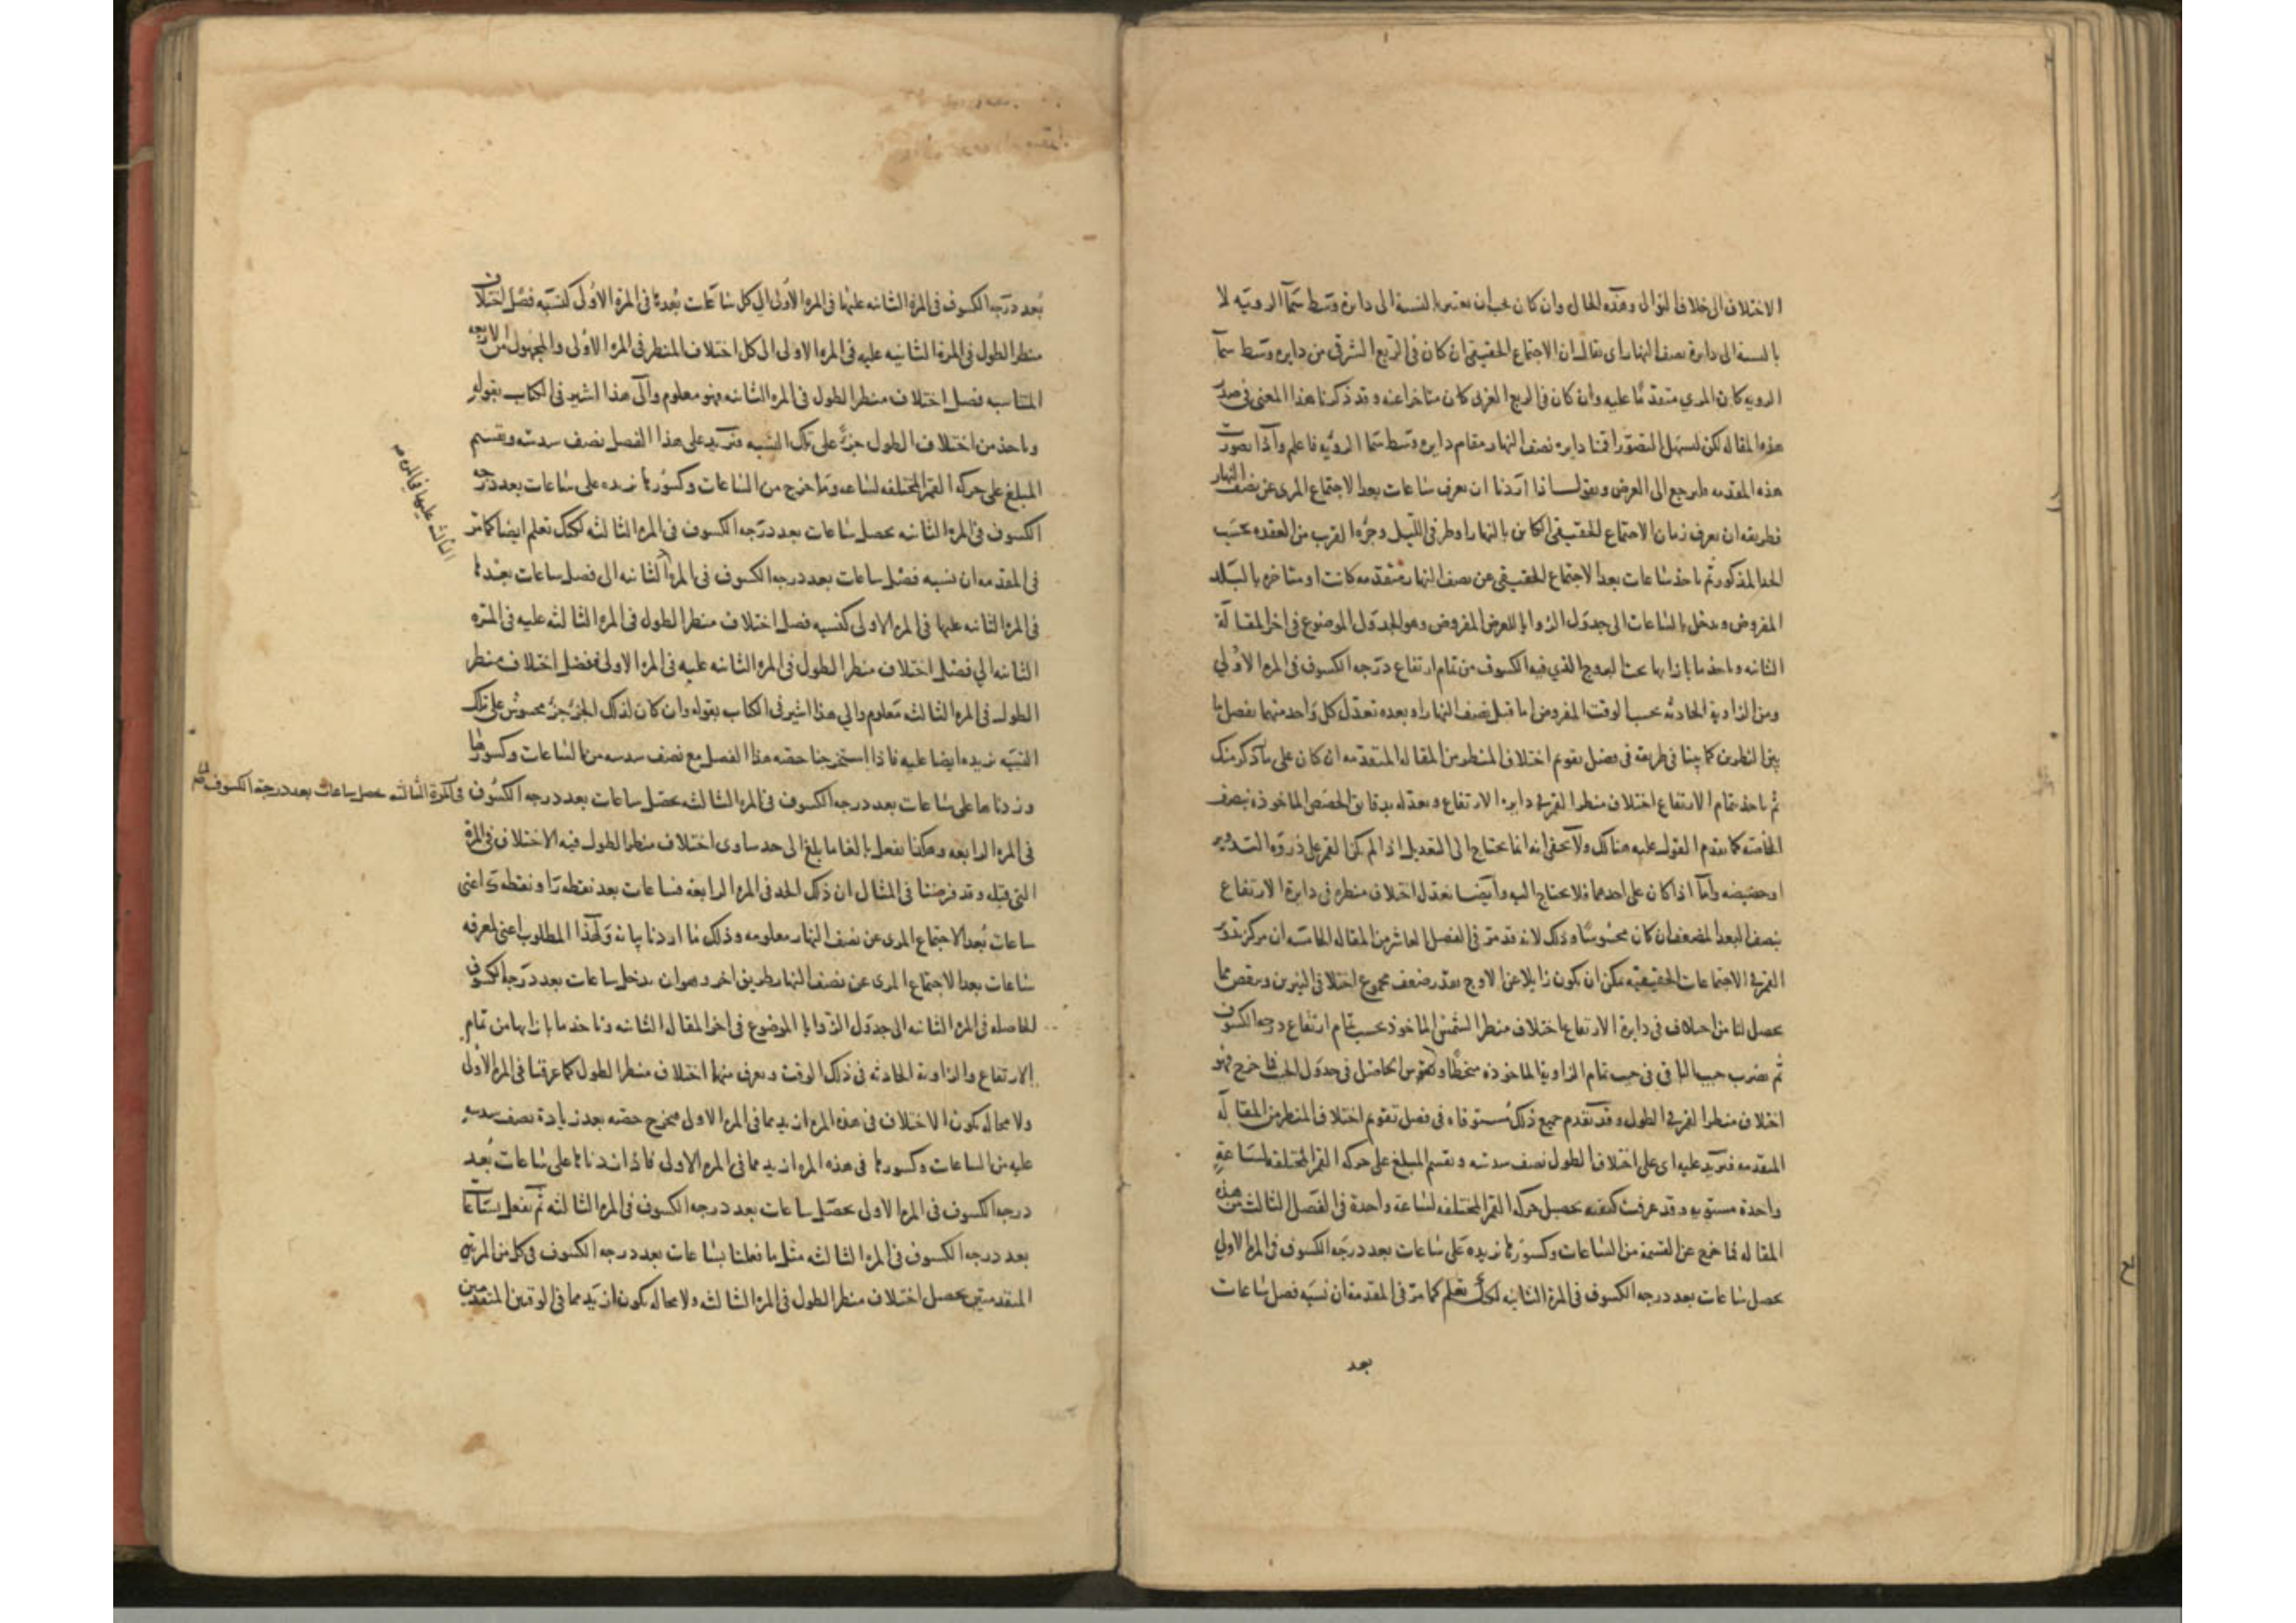 الاختلاف الى خلاف التوالى وهذه الحال وان كان يجب ان يعتبر بالنسبة الى دايرة وسط سمآ الرويه لا
بالنسبة الى دايرة نصف النهار اى يقال ان الاجتماع الحقيقى ان كان فى الربع الشرقى من دايره وسط سمآ
الرويه كان المرى متقدمًا عليه وان كان فى الربع الغربى كان متاخرا عنه وقد ذكرنا هذا المعنى فى صدر
هذه المقاله لكن لسهل التصور اقمنا دايره نصف النهار مقام دايره وسط سما الرويه فاعلم واذا تصورت
هذه المقدمه فلنرجع الى الغرض ونقول اذا اردنا ان نعرف ساعات بعد الاجتماع المرى عن نصف النهار
فطريقه ان نعرف زمان الاجتماع الحقيقى الكاين بالنهار او طرفى الليل وجزءه القرب من العقده بحسب
الحد المذكور ثم ناخذ ساعات بعد الاجتماع الحقيقى عن نصف النهار متقدمه كانت او متاخره بالبلد
المفروض وندخل بالساعات الى جدول الزوايا للعرض المفروض وهو الجدول الموضوع فى اخر المقالة
الثانيه وناخذ ما بازايها تحت البرج الذي فيه الكسوف من تمام ارتفاع درجه الكسوف فى المره الاولي
ومن الزاوية الحادثه بحسب الوقت المفروض اما قبل نصف النهار او بعده نعدل كل واحد منهما بفصل ما
بين السطرين كما بينا فى طريقه فى فصل تقويم اختلاف المنظر من المقاله المتقدمه ان كان على ما ذكر منك
ثم ناخذ بتمام الارتفاع اختلاف منظر القمر فى دايره الارتفاع ونعدله بدقايق الحصص الماخوذه بنصف
الخامسه كما تقدم القول عليه هنالك ولا يخفى انه انما يحتاج الى التعديل اذا لم يكن القمر على ذروه التدوير
او حضيضه واما اذا كان على احدهما فلا يحتاج اليه وايضا نعدل اختلاف منظره فى دايرة الارتفاع
بنصف البعد المضعف ان كان محسوسًا وذلك لانه قد مر فى الفصل العاشر من المقاله الخامسه ان مركز تدوير
القمر فى الاجتماعات الحقيقيه يمكن ان يكون زايلا عن الاوج بقدر ضعف مجموع اختلافى النيرين وننقص مما
يحصل لنا من اختلاف فى دايرة الارتفاع اختلاف منظر الشمس الماخوذ بحسب تمام ارتفاع درجه الكسوف
ثم نضرب جيب الباقى فى جيب تمام الزاوية الماخوذه منحطًا ونقوس الحاصل فى جدول الجيب فما خرج فهو
اختلاف منظر القمر فى الطول وقد تقدم جميع ذلك مستوفاه فى فصل تقويم اختلاف المنظر من المقالة
المتقدمه فنزيد عليه اى على اختلاف الطول نصف سدسه ونقسم المبلغ على حركه القمر المختلفه لساعةٍ
واحدة مستويه وقد عرفت كيفيه تحصيل حركه القمر المختلفه لساعة واحدة فى الفصل الثالث من هذه
المقاله فما خرج عن القسمة من الساعات وكسورها نزيده على ساعات بعد درجه الكسوف فى المره الاولي
يحصل ساعات بعد درجه الكسوف فى المرة الثانيه لكنك تعلم كما مر فى المقدمه ان نسبه فصل ساعات
بعد
بُعد درجه الكسوف فى المرة الثانيه عليها فى المره الاولى الي كل ساعات بُعدها فى المرة الاولى كنسبه فصل اختلاف
منظر الطول فى المرة الثانيه عليه فى المره الاولى الى كل اختلاف المنظر فى المره الاولى والمجهول من الاربعه
المتناسبه فصل اختلاف منظر الطول فى المره الثانيه فهو معلوم والى هذا اشير فى الكتاب بقوله
وناخذ من اختلاف الطول جزءً على تلك النسبه فنزيد على هذا الفصل نصف سدسه ونقسم
المبلغ على حركه القمر المختلفه لساعه وما خرج من الساعات وكسورها نزيده على ساعات بعد درجه
الكسوف فى المره الثانيه يحصل ساعات بعد درجه الكسوف فى المره الثالثه لكنك تعلم ايضا كما مر
فى المقدمه ان نسبه فصل ساعات بعد درجه الكسوف فى المره الثانيه الى فصل ساعات بعدها
الثالثه عليها فى المره
فى المره الثانيه عليها فى المره الاولى كنسبه فصل اختلاف منظر الطول فى المره الثالثه عليه فى المره
الثانيه الي فصل اختلاف منظر الطول فى المره الثانيه عليه فى المره الاولى ففصل اختلاف منظر
الطول فى المره الثالثه معلوم والي هذا اشير فى الكتاب بقوله وان كان لذلك الجزء جزء محسوس على تلك
النسبه نزيده ايضا عليه فاذا استخرجنا حصه هذا الفصل مع نصف سدسه من الساعات وكسورها
وزدناها على ساعات بعد درجه الكسوف فى المره الثالثه يحصل ساعات بعد درجه الكسوف
فى الكرة الثالثه حصل ساعات بعد درجة الكسوف
فى المره الرابعه وهكذا نفعل بالغا ما بلغ الى حد يساوى اختلاف منظر الطول فيه الاختلاف فى المرة
التى قبله وقد فرضنا فى المثال ان ذلك الحد فى المره الرابعه فساعات بعد نقطه را ونقطه ى اعنى
ساعات بُعد الاجتماع المرى عن نصف النهار معلومه وذلك ما اردنا بيانه ولهذا المطلوب اعنى لمعرفه
ساعات بعد الاجتماع المرى عن نصف النهار طريق اخر وهو ان ندخل ساعات بعد درجه الكسوف
الحاصله فى المره الثانيه الى جدول الزوايا الموضوع فى اخر المقاله الثانيه وناخذ ما بازايها من تمام
الارتفاع والزاوية الحادثه فى ذلك الوقت ونعرف منها اختلاف منظر الطول كما عرفنا فى المره الاولى
ولا محاله يكون الاختلاف فى هذه المره ازيد مما فى المره الاولى فيخرج حصته بعد زيادة نصف سدسه
عليه من الساعات وكسورها فى هذه المره ازيد مما فى المره الاولى فاذا زدناها على ساعات بُعد
درجه الكسوف فى المره الاولى يحصل ساعات بعد درجه الكسوف فى المره الثالثه ثم نفعل بساعات
بعد درجه الكسوف فى المره الثالثه مثل ما فعلنا بساعات بعد درجه الكسوف فى كل من المرتين
المتقدمتين يحصل اختلاف منظر الطول فى المره الثالثه ولا محاله يكون ازيد مما فى الوقتين المتقدمين